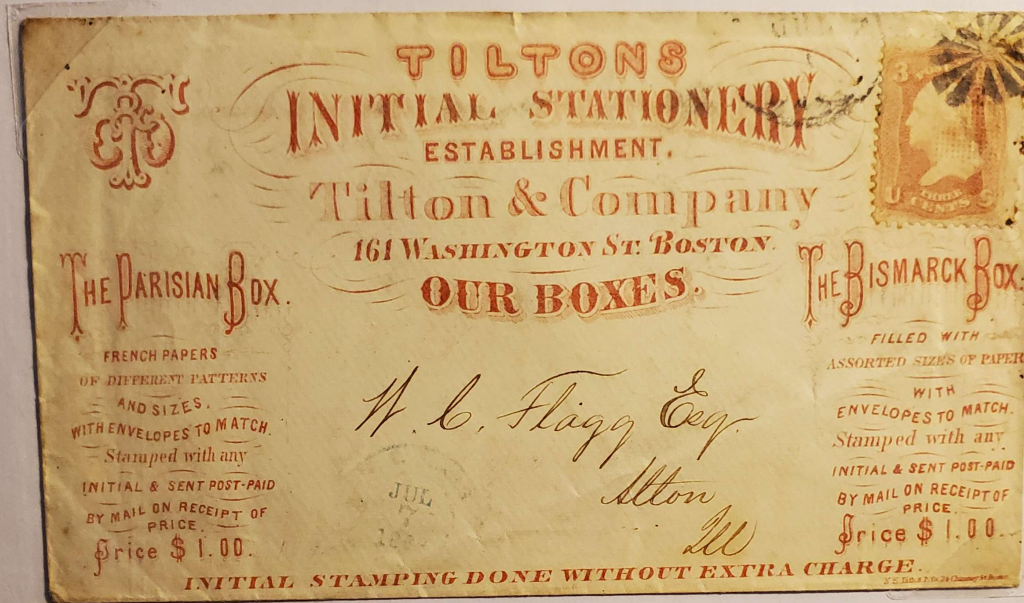 TILTONS
INITIAL STATIONERY
ESTABLISHMENT.
Tilton & Company
161 WASHINGTON ST. BOSTON.
OUR BOXES.
3
U THREE CENTS S
THE PARISIAN BOX.
FRENCH PAPERS
OF DIFFERENT PATTERNS
AND SIZES.
WITH ENVELOPES TO MATCH.
Stamped with any
INITIAL & SENT POST-PAID
BY MAIL ON RECEIPT OF
PRICE.
Price $1.00.
THE BISMARCK BOX.
FILLED WITH
ASSORTED SIZES OF PAPER
WITH
ENVELOPES TO MATCH.
Stamped with any
INITIAL & SENT POST-PAID
BY MAIL ON RECEIPT OF
PRICE.
Price $1.00.
W. C. Flagg Esq.
Alton
Ill
JUL
17
INITIAL STAMPING DONE WITHOUT EXTRA CHARGE.